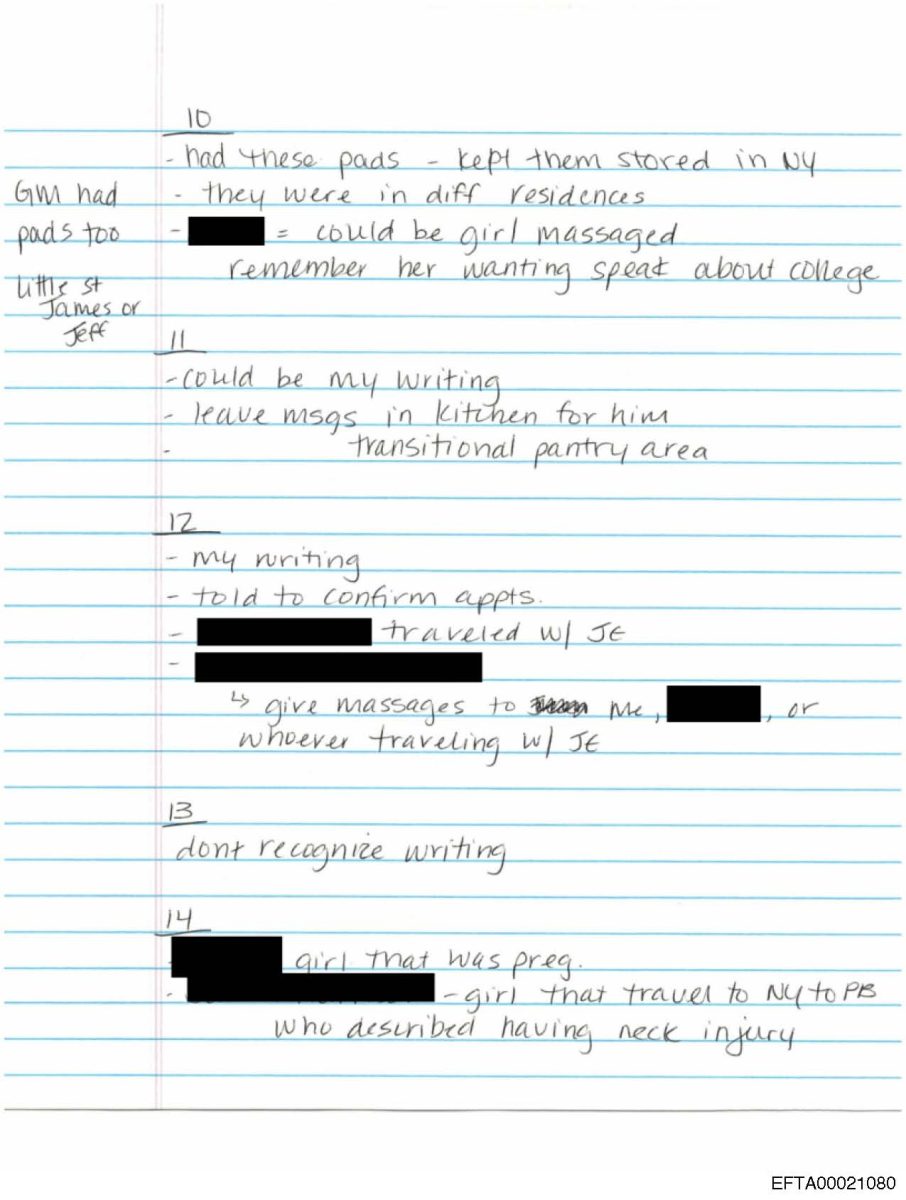 10
- had these pads - kept them stored in NY
GM had
pads too
Little st
James or
Jeff
- they were in diff residences
- = could be girl massaged
remember her wanting speak about college
11
- could be my writing
- leave msgs in kitchen for him
- transitional pantry area
12
- my writing
- told to confirm appts.
- traveled w/ JE
-
↳ give massages to me, , or
whoever traveling w/ JE
13
dont recognize writing
14
- girl that was preg.
- - girl that travel to NY to PB
who described having neck injury
EFTA00021080